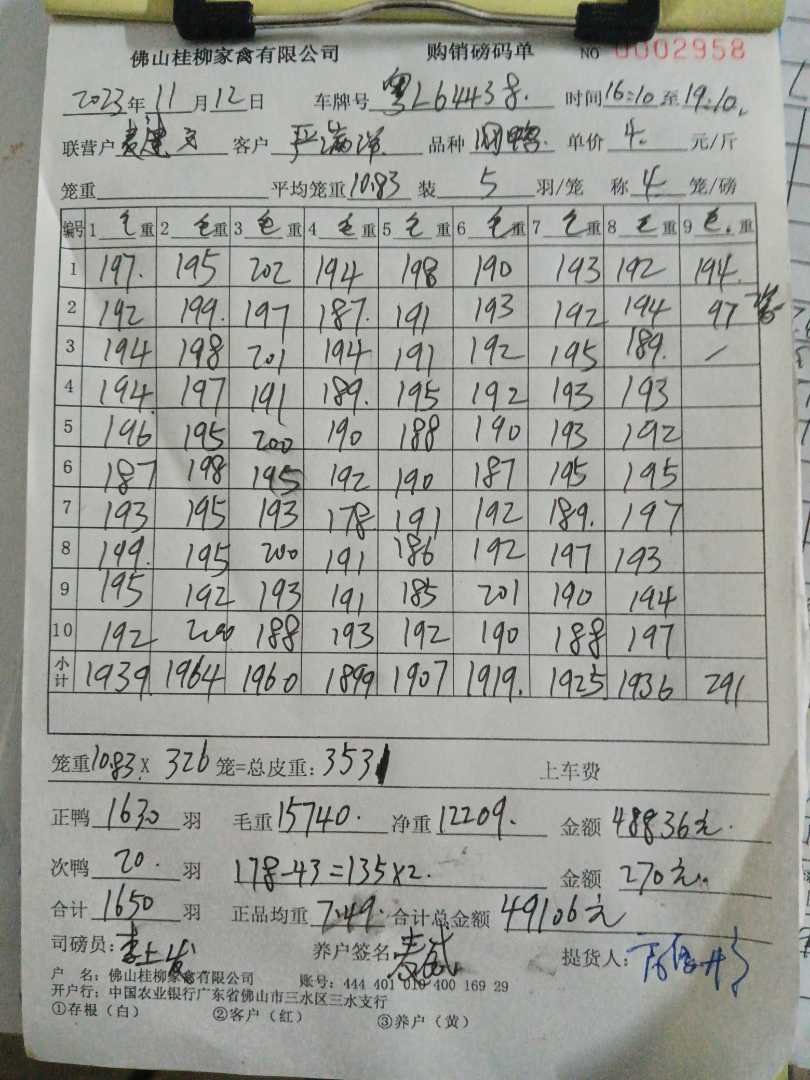 佛山桂柳家禽有限公司 购销磅码单 NO 0002958
2023年11月12日 车牌号 粤L64438. 时间16:10至19:10.
联营户 客户 严满洋 品种 单价 4. 元/斤
笼重 平均笼重10.83 装 5 羽/笼 称 4 笼/磅
编号 1 毛重 2 毛重 3 毛重 4 毛重 5 毛重 6 毛重 7 毛重 8 毛重 9 毛重
1 197. 195 202 194 198 190 193 192 194.
2 192 199. 197 187. 191 193 192 194 97 2笼
3 194 198 201 194 191 192 195 189. /
4 194. 197 191 189. 195 192 193 193
5 196 195 200 190 188 190 193 192
6 187 198 195 192 190 187 195 195
7 193 195 193 178 191 192 189. 197
8 199. 195 200 191 186 192 197 193
9 195 192 193 191 185 201 190 194
10 192 200 188 193 192 190 188 197
小计 1939 1964 1960 1899 1907 1919. 1925 1936 291
笼重10.83 X 326 笼=总皮重：3531 上车费
正鸭 1630 羽 毛重 15740. 净重 12209. 金额 48836元.
次鸭 20. 羽 178-43=135×2. 金额 270元.
合计 1650 羽 正品均重 7.49. 合计总金额 49106元
司磅员： 养户签名 提货人：
户 名：佛山桂柳家禽有限公司 账号：444 401 010 400 169 29
开户行：中国农业银行广东省佛山市三水区三水支行
①存根（白） ②客户（红） ③养户（黄）